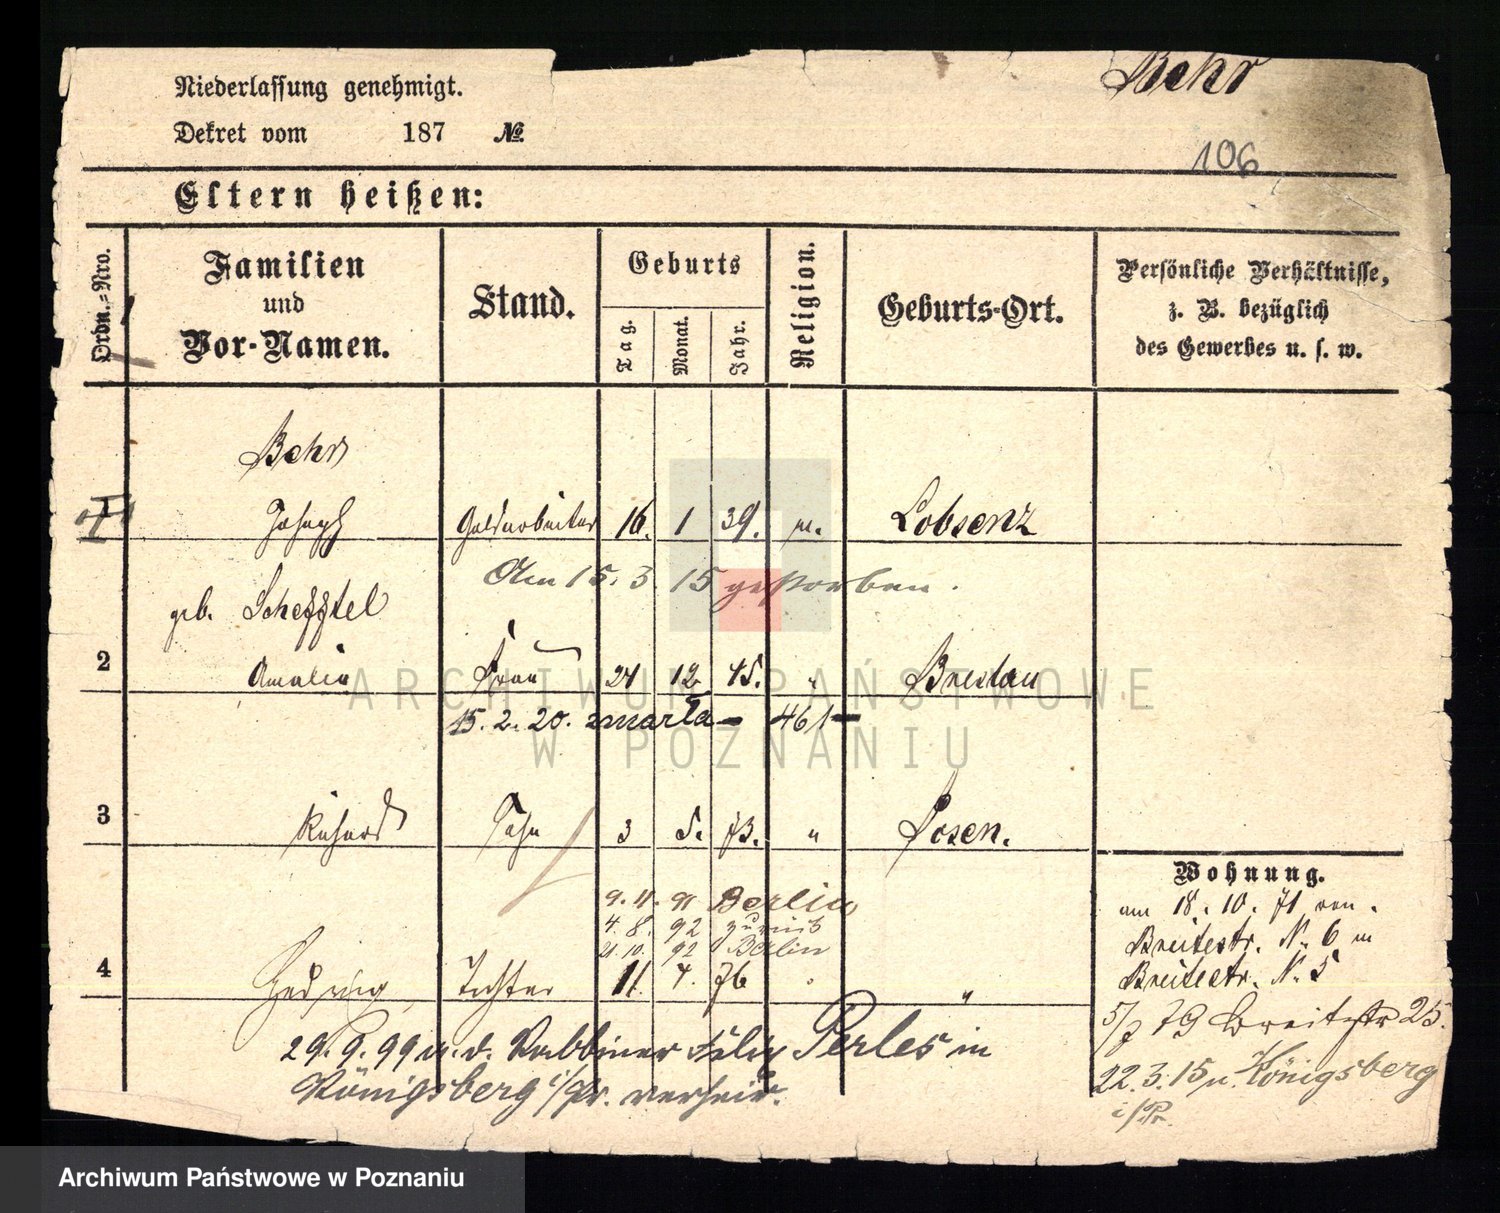 Behr
Niederlassung genehmigt.
Dekret vom 187 №
106
Eltern heißen:
Ordn.=Nro.
Familien und Vor-Namen.
Stand.
Geburts
Tag. Monat. Jahr.
Religion.
Geburts-Ort.
Persönliche Verhältnisse,
z. B. bezüglich
des Gewerbes u. s. w.
Behr
1 Joseph Goldarbeiter 16. 1 39. m. Lobsenz
Am 15. 3. 15 gestorben.
geb. Scheftel
2 Amalie Frau 24 12 45. " Breslau
15. 2. 20. zmarła - 461 -
3 Richard Sohn 3 5. 73. " Posen.
9. 11. 91 Berlin
4. 8. 92 zurück
21. 10. 92 Berlin
4 Hedwig Tochter 11. 4. 76 "
29. 9. 99 m. d. Rabbiner Felix Perles in
Königsberg i/Pr. verheir.
Wohnung.
am 18. 10. 71 von
Breitestr. N. 6 in
Breitestr. N. 5
5/7 79 Breitestr 25.
22. 3. 15 n. Königsberg
i/Pr.
ARCHIWUM PAŃSTWOWE
W POZNANIU
Archiwum Państwowe w Poznaniu